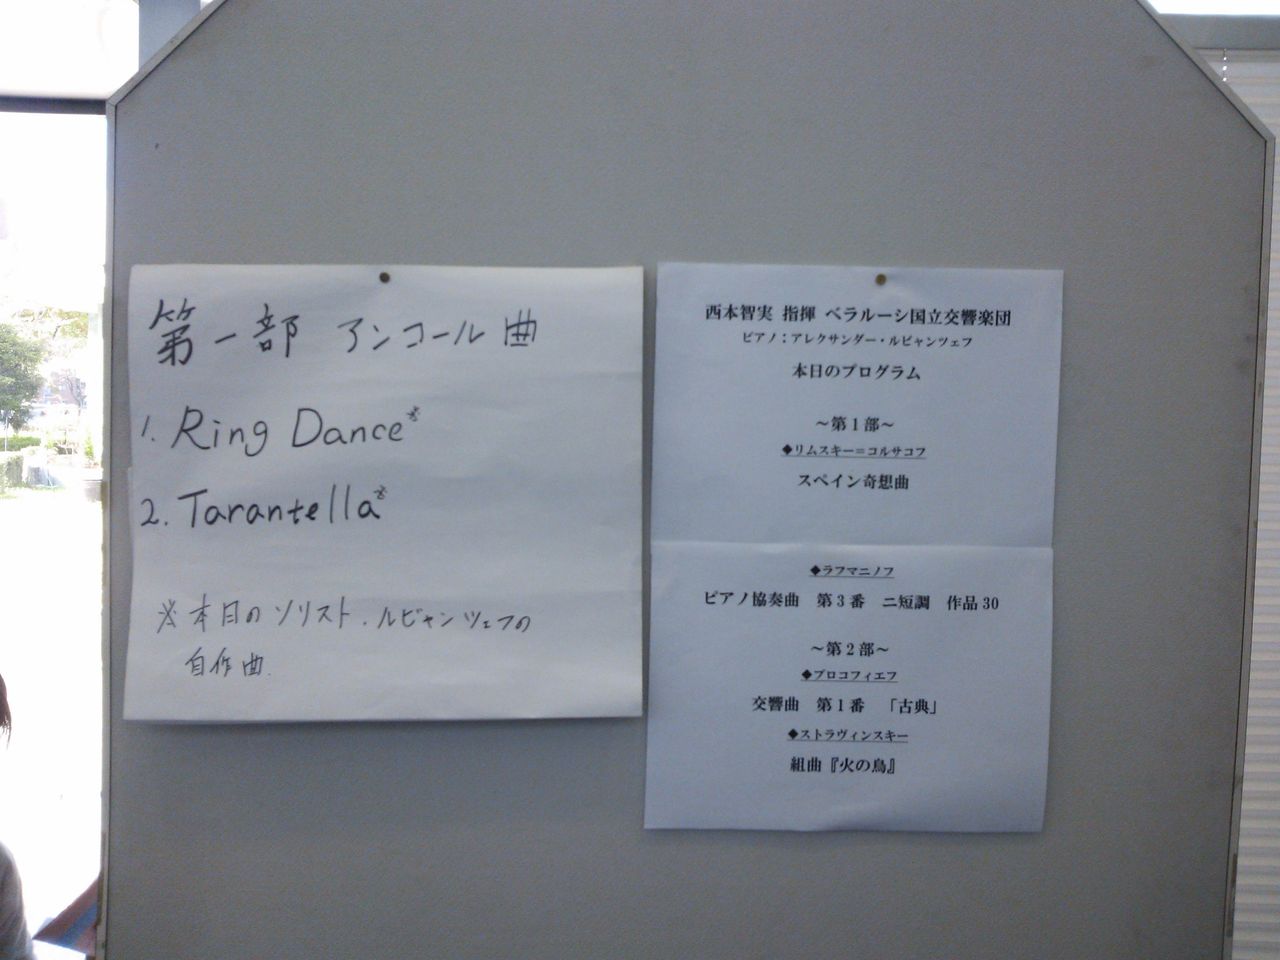 第一部 アンコール曲
1. Ring Dance※
2. Tarantella※
※本日のソリスト.ルビャンツェフの
自作曲.
西本智実 指揮 ベラルーシ国立交響楽団
ピアノ：アレクサンダー・ルビャンツェフ
本日のプログラム
～第１部～
◆リムスキー＝コルサコフ
スペイン奇想曲
◆ラフマニノフ
ピアノ協奏曲　第３番　ニ短調　作品30
～第２部～
◆プロコフィエフ
交響曲　第１番　「古典」
◆ストラヴィンスキー
組曲『火の鳥』